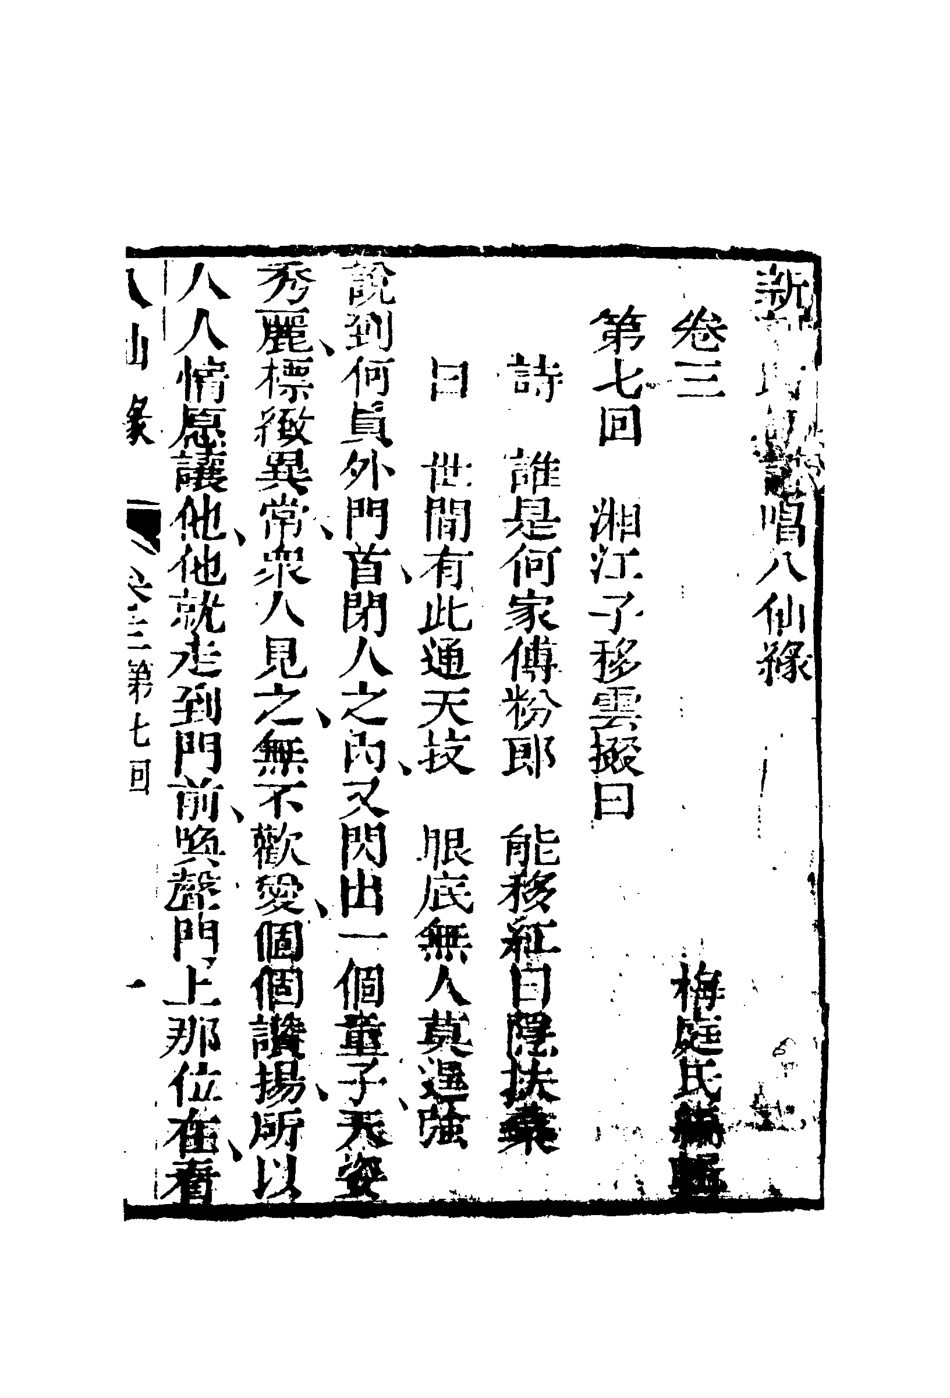 新唱八仙緣
卷三　梅庭氏編輯
第七回　湘江子移雲掇日
詩　誰是何家傅粉郎　能移紅日隱扶桒
曰　世間有此通天技　眼底無人莫逞强
說到何員外門首閉人之內又閃出一個童子天姿
秀麗、標緻異常、衆人見之、無不歡愛、個個讚揚、所以
人人情愿讓他、他就走到門前、喚聲門上那位在看
八仙緣　卷三第七回　一